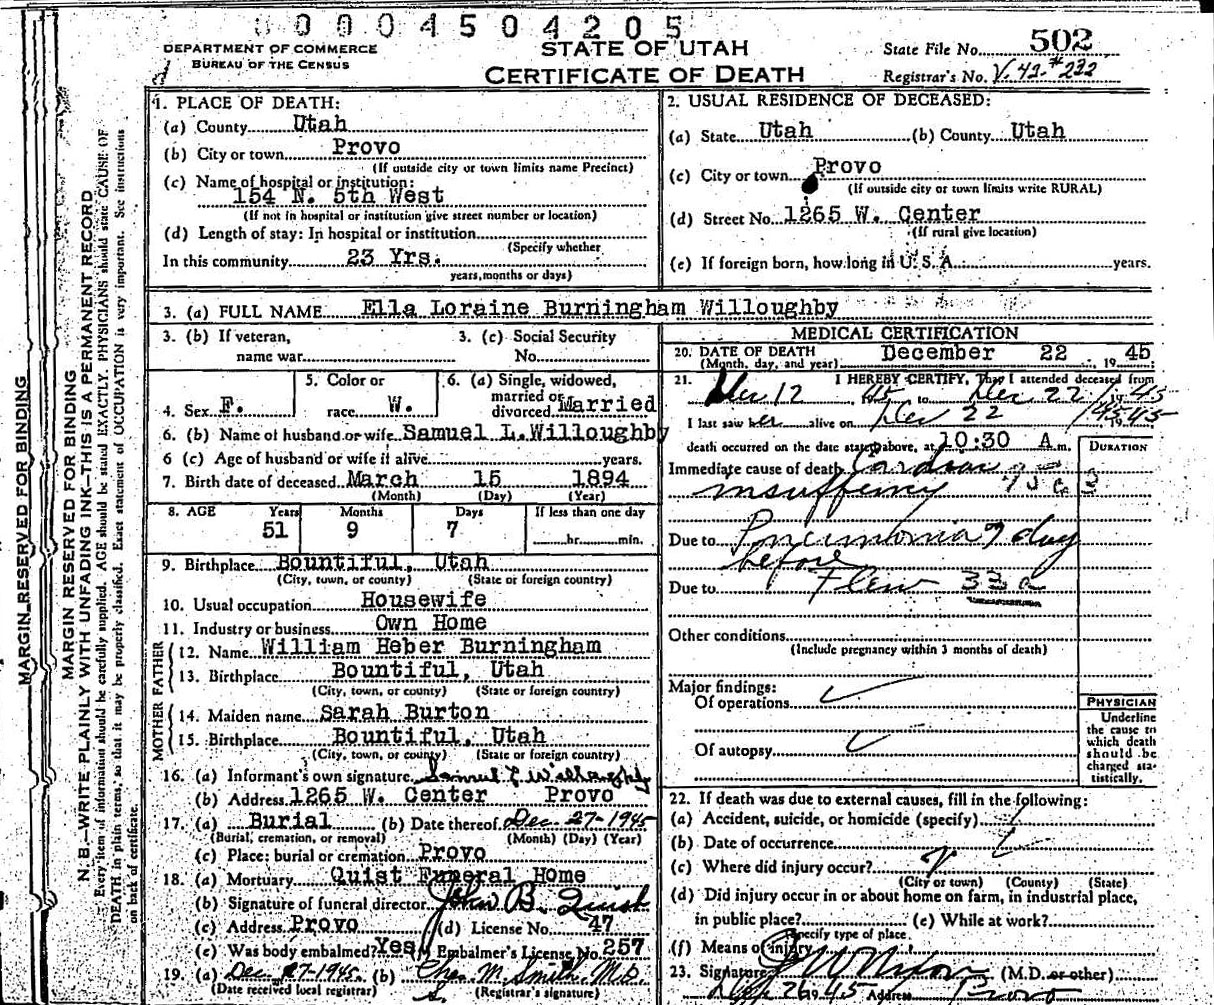 0004504205
DEPARTMENT OF COMMERCE
BUREAU OF THE CENSUS
STATE OF UTAH
CERTIFICATE OF DEATH
State File No. 502
Registrar's No. V. 42-#232
MARGIN RESERVED FOR BINDING
MARGIN RESERVED FOR BINDING
N.B.—WRITE PLAINLY WITH UNFADING INK—THIS IS A PERMANENT RECORD
Every item of information should be carefully supplied. AGE should be stated EXACTLY. PHYSICIANS should state CAUSE OF
DEATH in plain terms, so that it may be properly classified. Exact statement of OCCUPATION is very important. See instructions
on back of certificate.
1. PLACE OF DEATH:
(a) County Utah
(b) City or town Provo
(If outside city or town limits name Precinct)
(c) Name of hospital or institution:
154 N. 5th West
(If not in hospital or institution give street number or location)
(d) Length of stay: In hospital or institution
(Specify whether
In this community 23 Yrs.
years, months or days)
2. USUAL RESIDENCE OF DECEASED:
(a) State Utah (b) County Utah
(c) City or town Provo
(If outside city or town limits write RURAL)
(d) Street No. 1265 W. Center
(If rural give location)
(e) If foreign born, how long in U. S. A. years.
3. (a) FULL NAME Ella Loraine Burningham Willoughby
3. (b) If veteran,
name war
3. (c) Social Security
No.
4. Sex F.
5. Color or
race W.
6. (a) Single, widowed,
married or
divorced Married
6. (b) Name of husband or wife Samuel L. Willoughby
6 (c) Age of husband or wife if alive years.
7. Birth date of deceased March 15 1894
(Month) (Day) (Year)
8. AGE Years Months Days If less than one day
51 9 7 hr. min.
9. Birthplace Bountiful, Utah
(City, town, or county) (State or foreign country)
10. Usual occupation Housewife
11. Industry or business Own Home
FATHER
12. Name William Heber Burningham
13. Birthplace Bountiful, Utah
(City, town, or county) (State or foreign country)
MOTHER
14. Maiden name Sarah Burton
15. Birthplace Bountiful, Utah
(City, town, or county) (State or foreign country)
16. (a) Informant's own signature Samuel L Willoughby
(b) Address 1265 W. Center Provo
17. (a) Burial (b) Date thereof Dec. 27-1945
(Burial, cremation, or removal) (Month) (Day) (Year)
(c) Place: burial or cremation Provo
18. (a) Mortuary Quist Funeral Home
(b) Signature of funeral director John B. Quist
(c) Address Provo (d) License No. 47
(e) Was body embalmed? Yes (f) Embalmer's License No. 257
19. (a) Dec 27-1945 (b) Chas. M. Smith M.D.
(Date received local registrar) (Registrar's signature)
MEDICAL CERTIFICATION
20. DATE OF DEATH December 22, 1945
(Month, day, and year)
21. I HEREBY CERTIFY, That I attended deceased from
Dec 12 45 to Dec 22 1945
I last saw her alive on Dec 22 1945
death occurred on the date stated above, at 10:30 A.m.
DURATION
Immediate cause of death Cardiac 95c 3
Due to Pneumonia 7 day
before
Due to Flew 33a
Other conditions
(Include pregnancy within 3 months of death)
Major findings:
Of operations
Of autopsy
PHYSICIAN
Underline
the cause to
which death
should be
charged sta-
tistically.
22. If death was due to external causes, fill in the following:
(a) Accident, suicide, or homicide (specify)
(b) Date of occurrence
(c) Where did injury occur?
(City or town) (County) (State)
(d) Did injury occur in or about home on farm, in industrial place,
in public place? (e) While at work?
(Specify type of place.
(f) Means of injury
23. Signature (M.D. or other)
26 1945 Address Provo